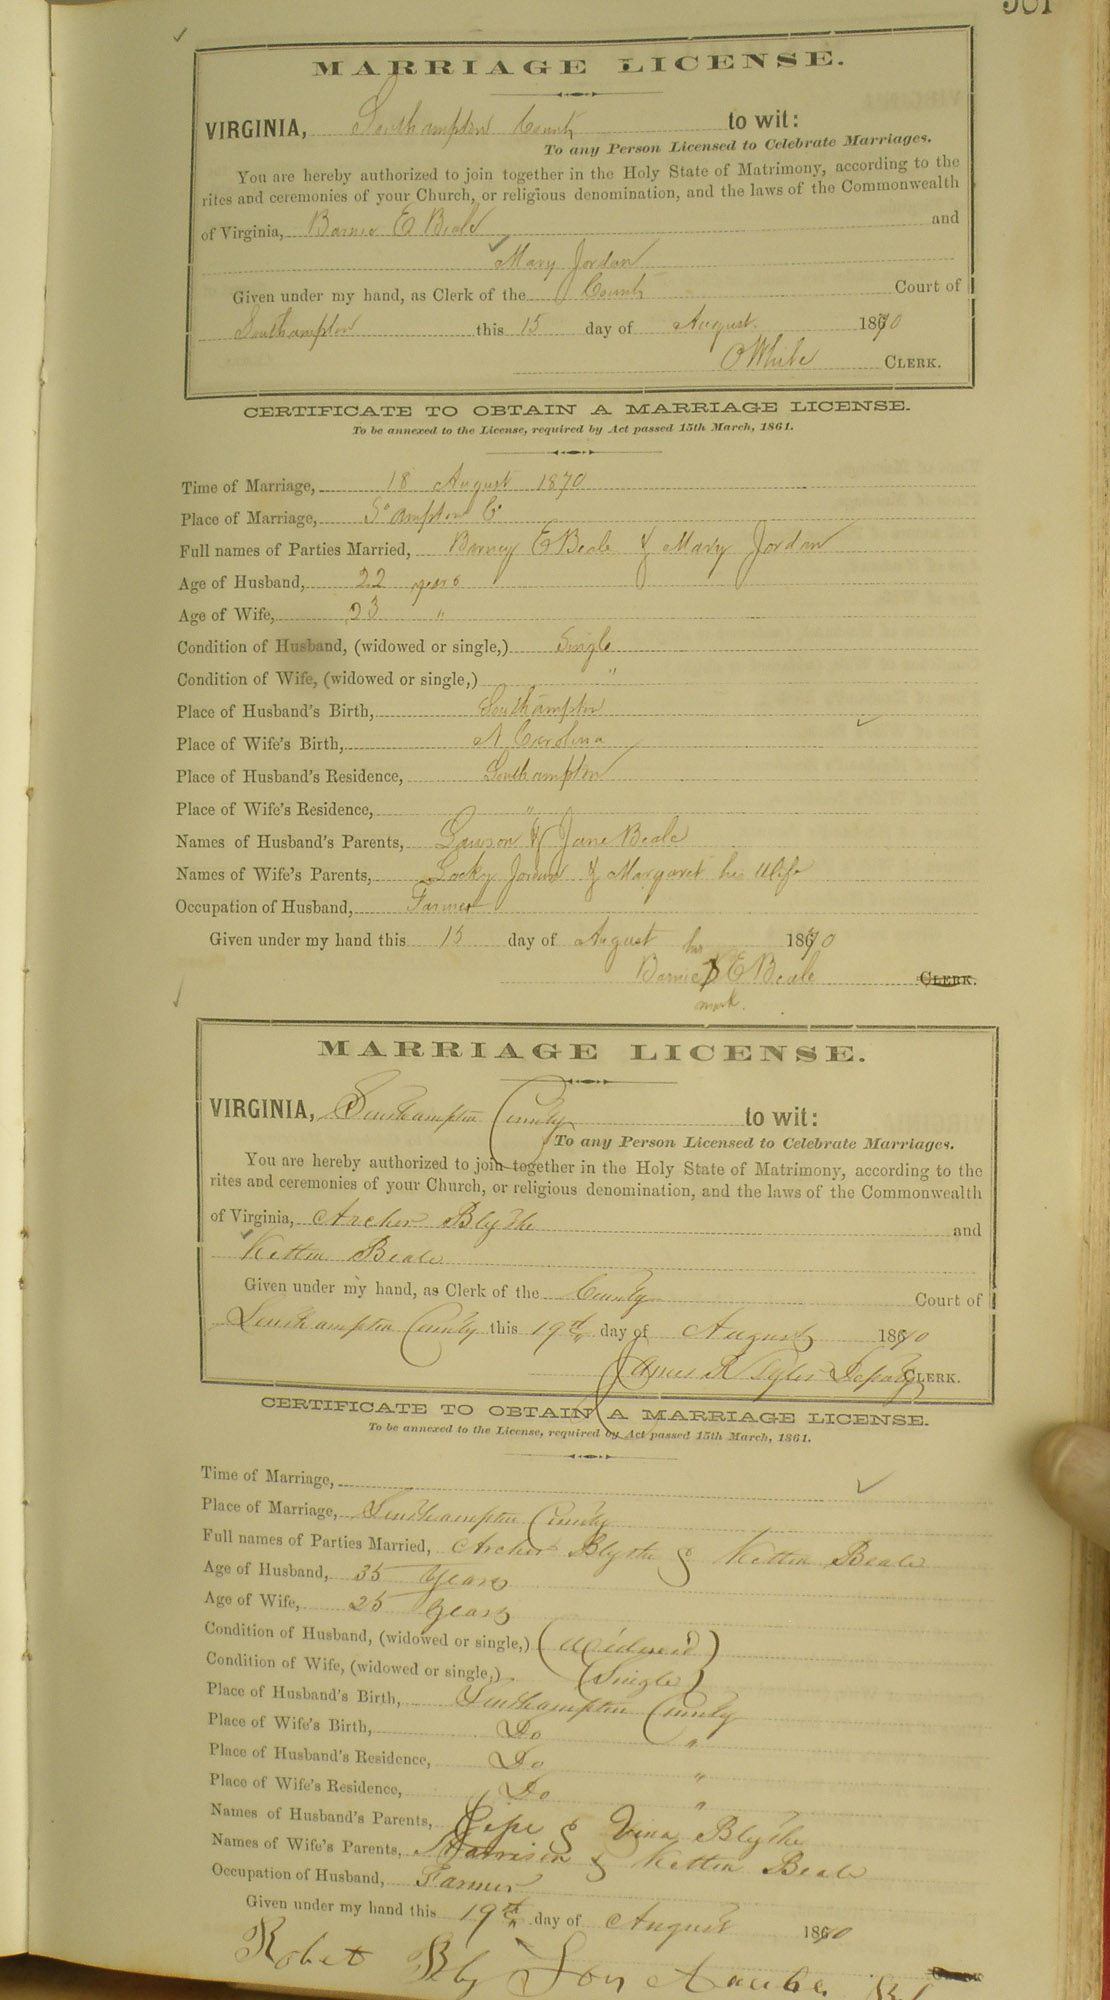 MARRIAGE LICENSE.
VIRGINIA, Southampton County to wit:
To any Person Licensed to Celebrate Marriages.
You are hereby authorized to join together in the Holy State of Matrimony, according to the
rites and ceremonies of your Church, or religious denomination, and the laws of the Commonwealth
of Virginia, Barnie E Beale and
Mary Jordan
Given under my hand, as Clerk of the County Court of
Southampton this 15 day of August 1870
White CLERK.
CERTIFICATE TO OBTAIN A MARRIAGE LICENSE.
To be annexed to the License, required by Act passed 15th March, 1861.
Time of Marriage, 18 August 1870
Place of Marriage, So ampton Co
Full names of Parties Married, Barney E Beale & Mary Jordan
Age of Husband, 22 years
Age of Wife, 23 "
Condition of Husband, (widowed or single,) Single
Condition of Wife, (widowed or single,) "
Place of Husband's Birth, Southampton
Place of Wife's Birth, N. Carolina
Place of Husband's Residence, Southampton
Place of Wife's Residence, "
Names of Husband's Parents, Lawson & Jane Beale
Names of Wife's Parents, Jordan & Margaret his Wife
Occupation of Husband, Farmer
Given under my hand this 15 day of August 1870
his
Barnie X E Beale CLERK.
mark.
MARRIAGE LICENSE.
VIRGINIA, Southampton County to wit:
To any Person Licensed to Celebrate Marriages.
You are hereby authorized to join together in the Holy State of Matrimony, according to the
rites and ceremonies of your Church, or religious denomination, and the laws of the Commonwealth
of Virginia, Archer Blythe and
Kettea Beale
Given under my hand, as Clerk of the County Court of
Southampton County this 19th day of August 1870
James R Tyler Deputy CLERK.
CERTIFICATE TO OBTAIN A MARRIAGE LICENSE.
To be annexed to the License, required by Act passed 15th March, 1861.
Time of Marriage,
Place of Marriage, Southampton County
Full names of Parties Married, Archer Blythe & Kettea Beale
Age of Husband, 35 Years
Age of Wife, 25 Years
Condition of Husband, (widowed or single,) (Widowed)
Condition of Wife, (widowed or single,) (Single)
Place of Husband's Birth, Southampton County
Place of Wife's Birth, Do "
Place of Husband's Residence, Do "
Place of Wife's Residence, Do "
Names of Husband's Parents, & Vina Blythe
Names of Wife's Parents, Harrison & Kettea Beale
Occupation of Husband, Farmer
Given under my hand this 19th day of August 1870